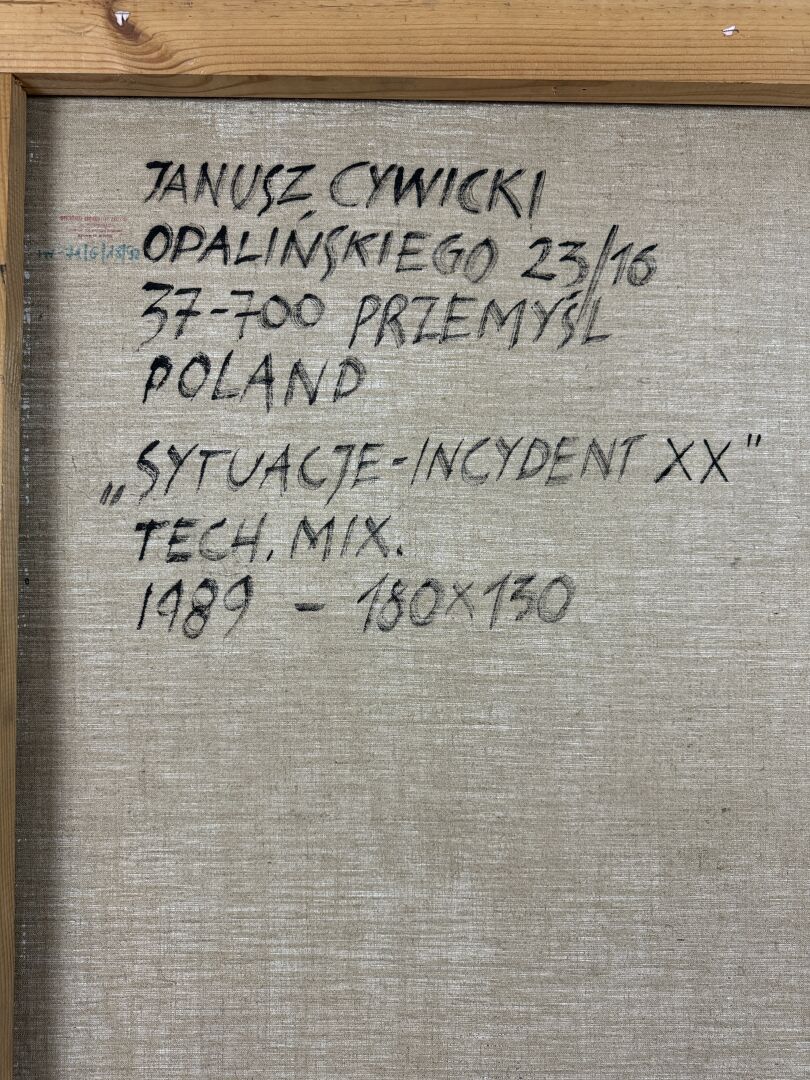 JANUSZ CYWICKI
OPALIŃSKIEGO 23/16
37-700 PRZEMYŚL
POLAND
„SYTUACJE-INCYDENT XX"
TECH. MIX.
1989 - 180X130